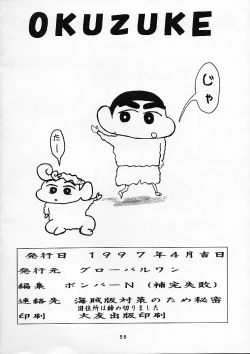 OKUZUKE
じゃ
たー
発行日 1997年4月吉日
発行元 グローバルワン
編集 ボンバーN（補完失敗）
連絡先 海賊版対策のため秘密
旧住所は締め切りました
印刷 大友出版印刷
56